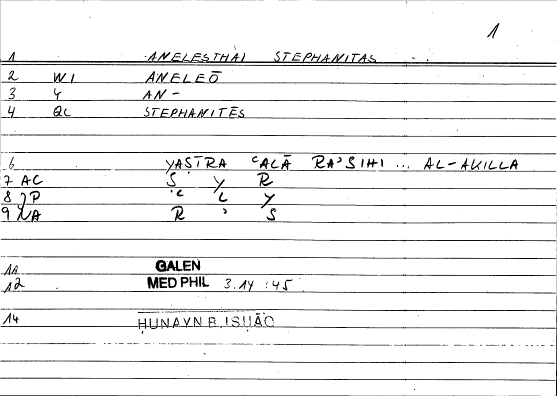 1
1 ANELESTHAI STEPHANITAS
2 WI ANELEŌ
3 Y AN-
4 QL STEPHANITĒS
6 YAṢTRA ʿALĀ RAʾSIHI ... AL-AKILLA
7 AC Ṣ Y R
8 JP ʿL L Y
9 NA R ʾ S
11 GALEN
12 MED PHIL 3.14 :45
14 ḤUNAYN B. ISḤĀQ